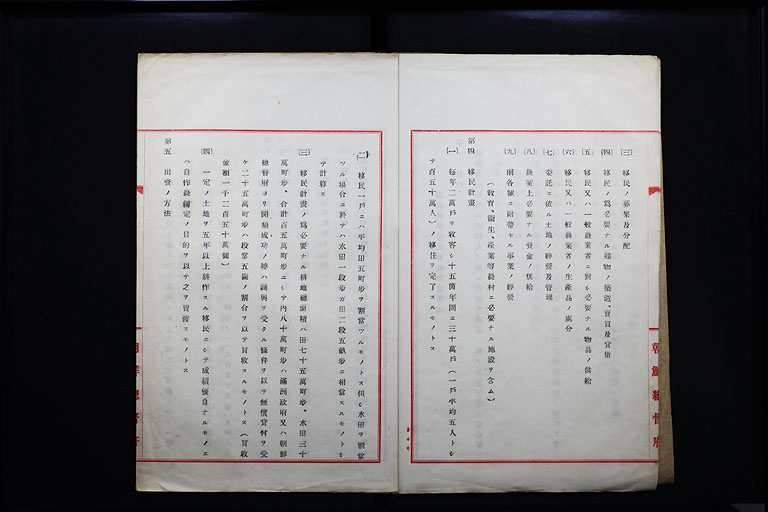 (三) 移民ノ募集及分配
(四) 移民ノ爲必要ナル建物ノ築造、賣買及貸借
(五) 移民又ハ一般農業者ニ對シ必要ナル物品ノ供給
(六) 移民又ハ一般農業者ノ生産品ノ處分
(七) 委託ニ依ル土地ノ經營及管理
(八) 農業上必要ナル資金ノ供給
(九) 前各號ニ附帶セル事業ノ經營
(敎育、衞生、産業等農村ニ必要ナル施設ヲ含ム)
第四 移民計畫
(一) 每年二萬戶ヲ收容シ十五箇年間ニ三十萬戶(一戶平均五人トシ
テ百五十萬人)ノ移住ヲ完了スルモノトス
朝鮮總督府
(二) 移民一戶ニハ平均田五町步ヲ割當ツルモノトス但シ水田ヲ割當
ツル場合ニ於テハ水田一段步ガ田二段五畝步ニ相當スルモノトシ
テ計算ス
(三) 移民計畫ノ爲必要ナル耕地總面積ハ田七十五萬町步、水田三十
萬町步、合計百五萬町步ニシテ內八十萬町步ハ滿洲政府又ハ朝鮮
總督府ヨリ開墾成功ノ時ハ讓與ヲ受クル條件ヲ以テ無償貸付ヲ受
ケ二十五萬町步ハ段當五圓ノ割合ヲ以テ買收スルモノトス(買收
金額一千二百五十萬圓)
(四) 一定ノ土地ヲ五年以上耕作スル移民ニシテ成績優良ナルモノニ
ハ自作農創定ノ目的ヲ以テ之ヲ賣渡スモノトス
第五 出資ノ方法